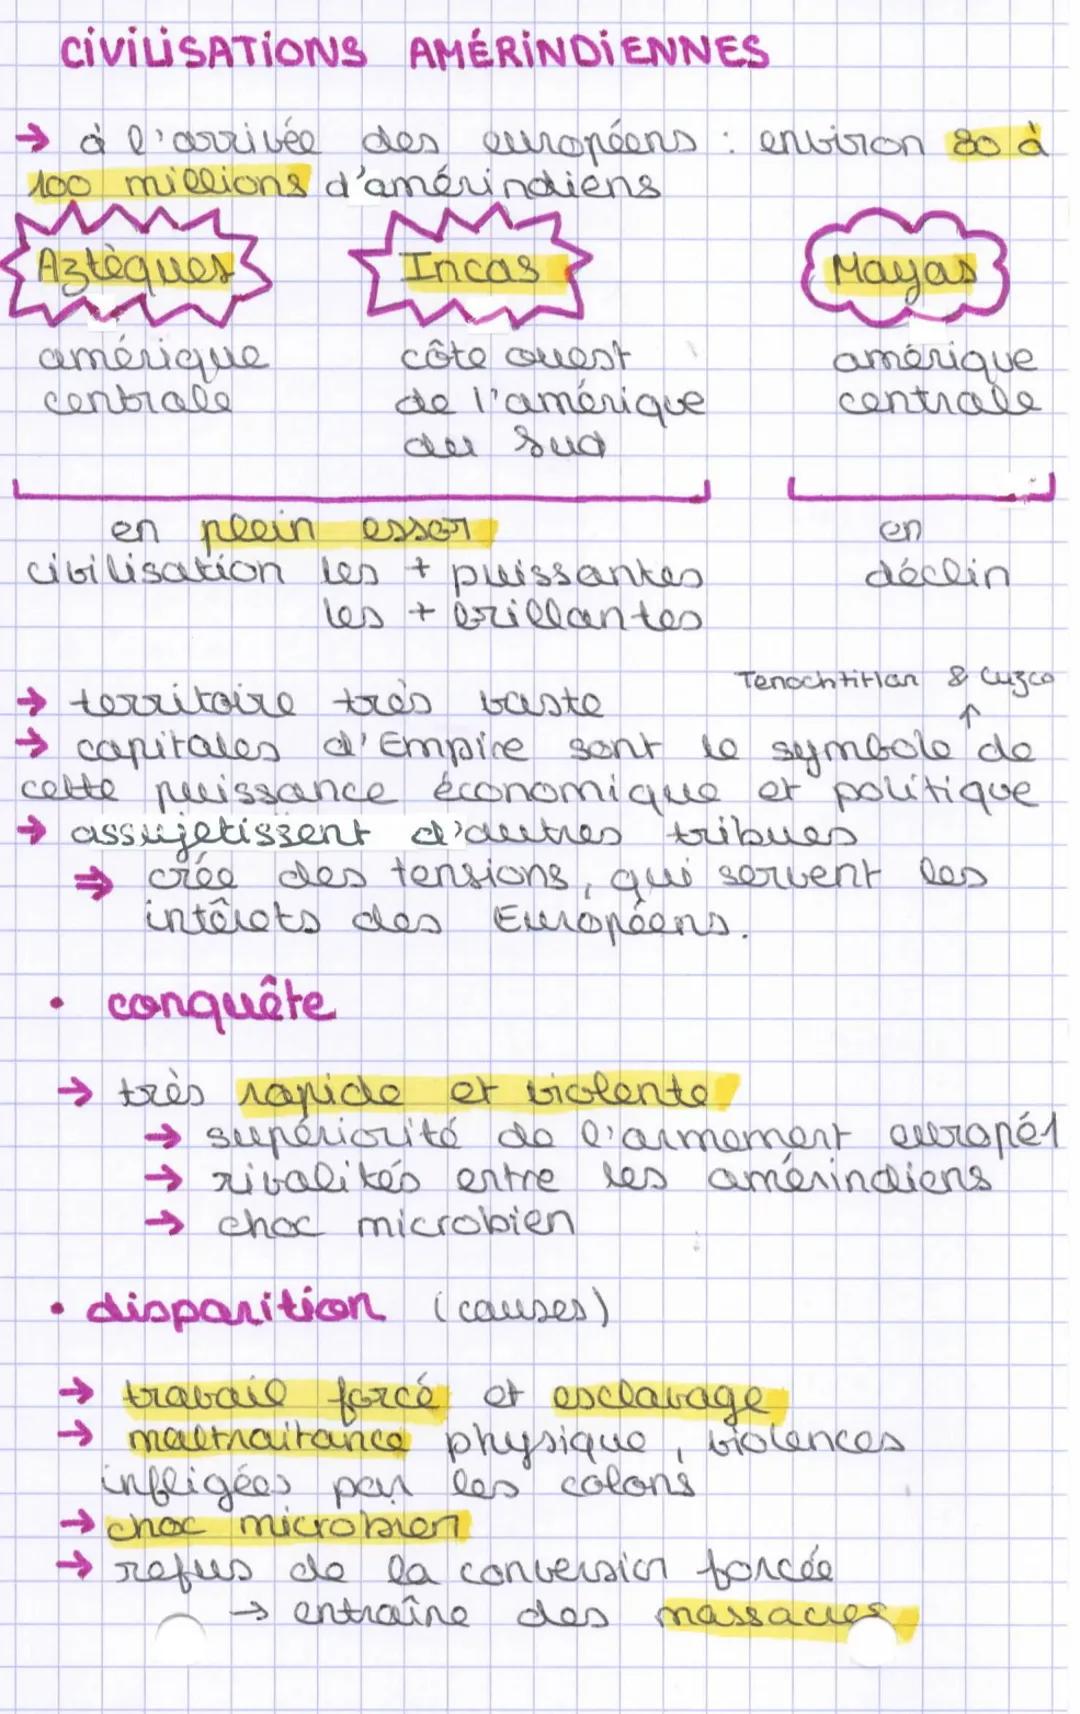 CIVILISATIONS AMÉRINDIENNES
→ à l'arrivée des européens : environ 80 à
100 millions d'amérindiens
Aztèques Incas Mayas
amérique côte ouest amérique
centrale de l'amérique centrale
du Sud
en plein essor en
civilisation les + puissantes déclin
les + brillantes
Tenochtitlan & Cuzco
→ territoire très vaste ↑
→ capitales d'Empire sont le symbole de
cette puissance économique et politique
→ assujetissent d'autres tribues
⇒ crée des tensions, qui servent les
intêrets des Européens.
• conquête
→ très rapide et violente
→ supériorité de l'armement europé
→ rivalités entre les amérindiens
→ choc microbien
• disparition (causes)
→ travail forcé et esclavage
→ maltraitance physique, violences
infligées par les colons
→ choc microbien
→ refus de la conversion forcée
→ entraîne des massacres